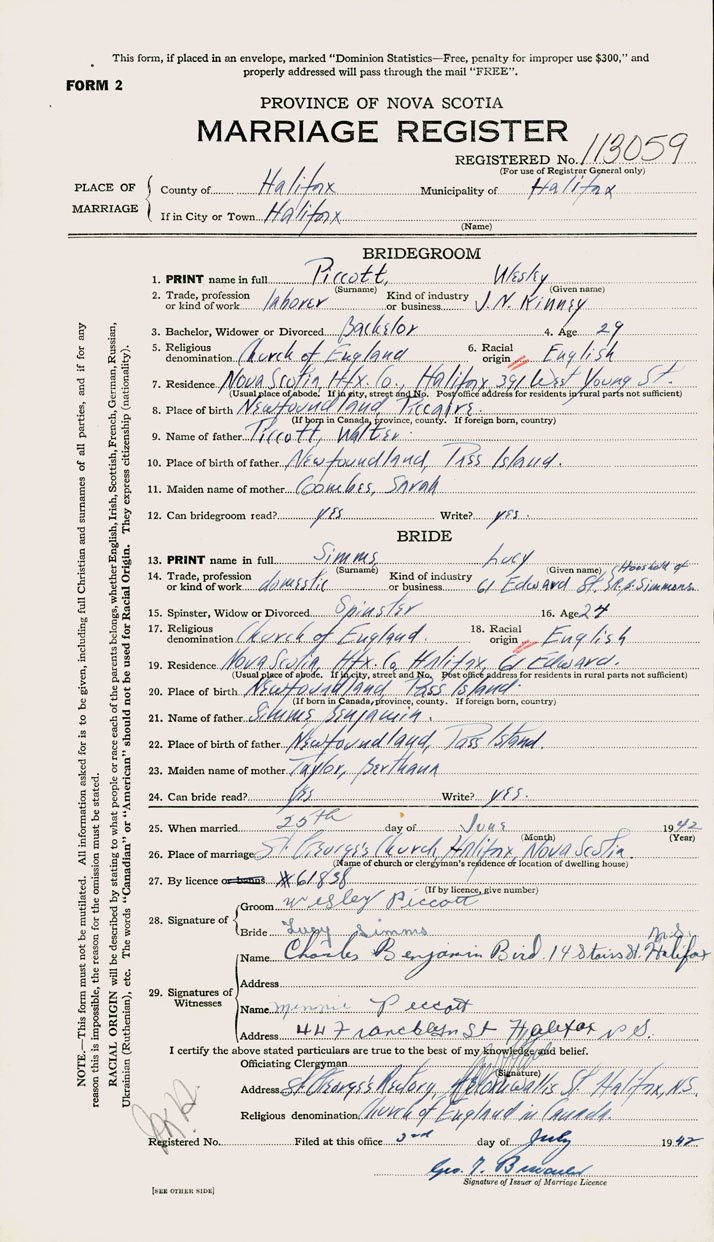 This form, if placed in an envelope, marked "Dominion Statistics—Free, penalty for improper use $300," and
properly addressed will pass through the mail "FREE".
FORM 2
PROVINCE OF NOVA SCOTIA
MARRIAGE REGISTER
REGISTERED No. 113059
(For use of Registrar General only)
PLACE OF MARRIAGE
County of Halifax Municipality of Halifax
If in City or Town Halifax
(Name)
BRIDEGROOM
1. PRINT name in full Piccott, Wesley
(Surname) (Given name)
2. Trade, profession or kind of work laborer Kind of industry or business J.N. Kinney
3. Bachelor, Widower or Divorced Bachelor 4. Age 29
5. Religious denomination Church of England 6. Racial origin English
7. Residence Nova Scotia, Hfx. Co., Halifax 391 West Young St.
(Usual place of abode. If in city, street and No. Post office address for residents in rural parts not sufficient)
8. Place of birth Newfoundland, Piccaire.
(If born in Canada, province, county. If foreign born, country)
9. Name of father Piccott, Walter
10. Place of birth of father Newfoundland, Pass Island.
11. Maiden name of mother Coombes, Sarah
12. Can bridegroom read? yes Write? yes.
BRIDE
13. PRINT name in full Simms Lucy
(Surname) (Given name)
14. Trade, profession or kind of work domestic Kind of industry or business 61 Edward St. (Household of R.B. Simmons
15. Spinster, Widow or Divorced Spinster 16. Age 24
17. Religious denomination Church of England. 18. Racial origin English
19. Residence Nova Scotia, Hfx. Co, Halifax, 61 Edward.
(Usual place of abode. If in city, street and No. Post office address for residents in rural parts not sufficient)
20. Place of birth Newfoundland Pass Island.
(If born in Canada, province, county. If foreign born, country)
21. Name of father Simms Benjamin.
22. Place of birth of father Newfoundland, Pass Island.
23. Maiden name of mother Taylor, Berthana
24. Can bride read? yes Write? yes.
25. When married 25th day of June 1942
(Month) (Year)
26. Place of marriage St. George's Church, Halifax, Nova Scotia.
(Name of church or clergyman's residence or location of dwelling house)
27. By licence or banns #61838
(If by licence, give number)
28. Signature of
Groom Wesley Piccott
Bride Lucy Simms
29. Signatures of Witnesses
Name Charles Benjamin Bird. 14 Stairs St. Halifax N.S.
Address
Name Minnie Piccott
Address 447 St Halifax N S.
I certify the above stated particulars are true to the best of my knowledge and belief.
Officiating Clergyman
(Signature)
Address St. George's Rectory, St. Halifax, N.S.
Religious denomination Church of England in Canada.
Registered No. Filed at this office 3rd day of July 1942
Geo. T.
Signature of Issuer of Marriage Licence
[SEE OTHER SIDE]
NOTE.—This form must not be mutilated. All information asked for is to be given, including full Christian and surnames of all parties, and if for any
reason this is impossible, the reason for the omission must be stated.
RACIAL ORIGIN will be described by stating to what people or race each of the parents belongs, whether English, Irish, Scottish, French, German, Russian,
Ukrainian (Ruthenian), etc. The words "Canadian" or "American" should not be used for Racial Origin. They express citizenship (nationality).